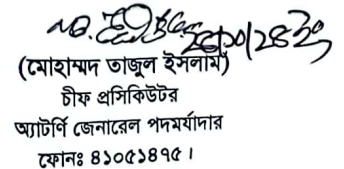 (মোহাম্মদ তাজুল ইসলাম)
চীফ প্রসিকিউটর
অ্যাটর্নি জেনারেল পদমর্যাদার
ফোনঃ ৪১০৫১৪৭৫।